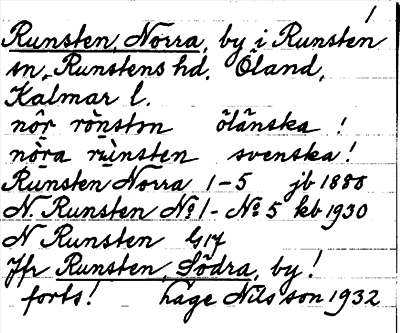 1
Runsten, Norra, by i Runsten
sn, Runstens hd, Öland,
Kalmar l.
nôr rònston öländska !
nö̀ra rùnsten svenska !
Runsten Norra 1-5 jb 1880
N. Runsten No 1 - No 5 kb 1930
N Runsten G17
Jfr Runsten, Södra, by !
forts! Håge Nilsson 1932